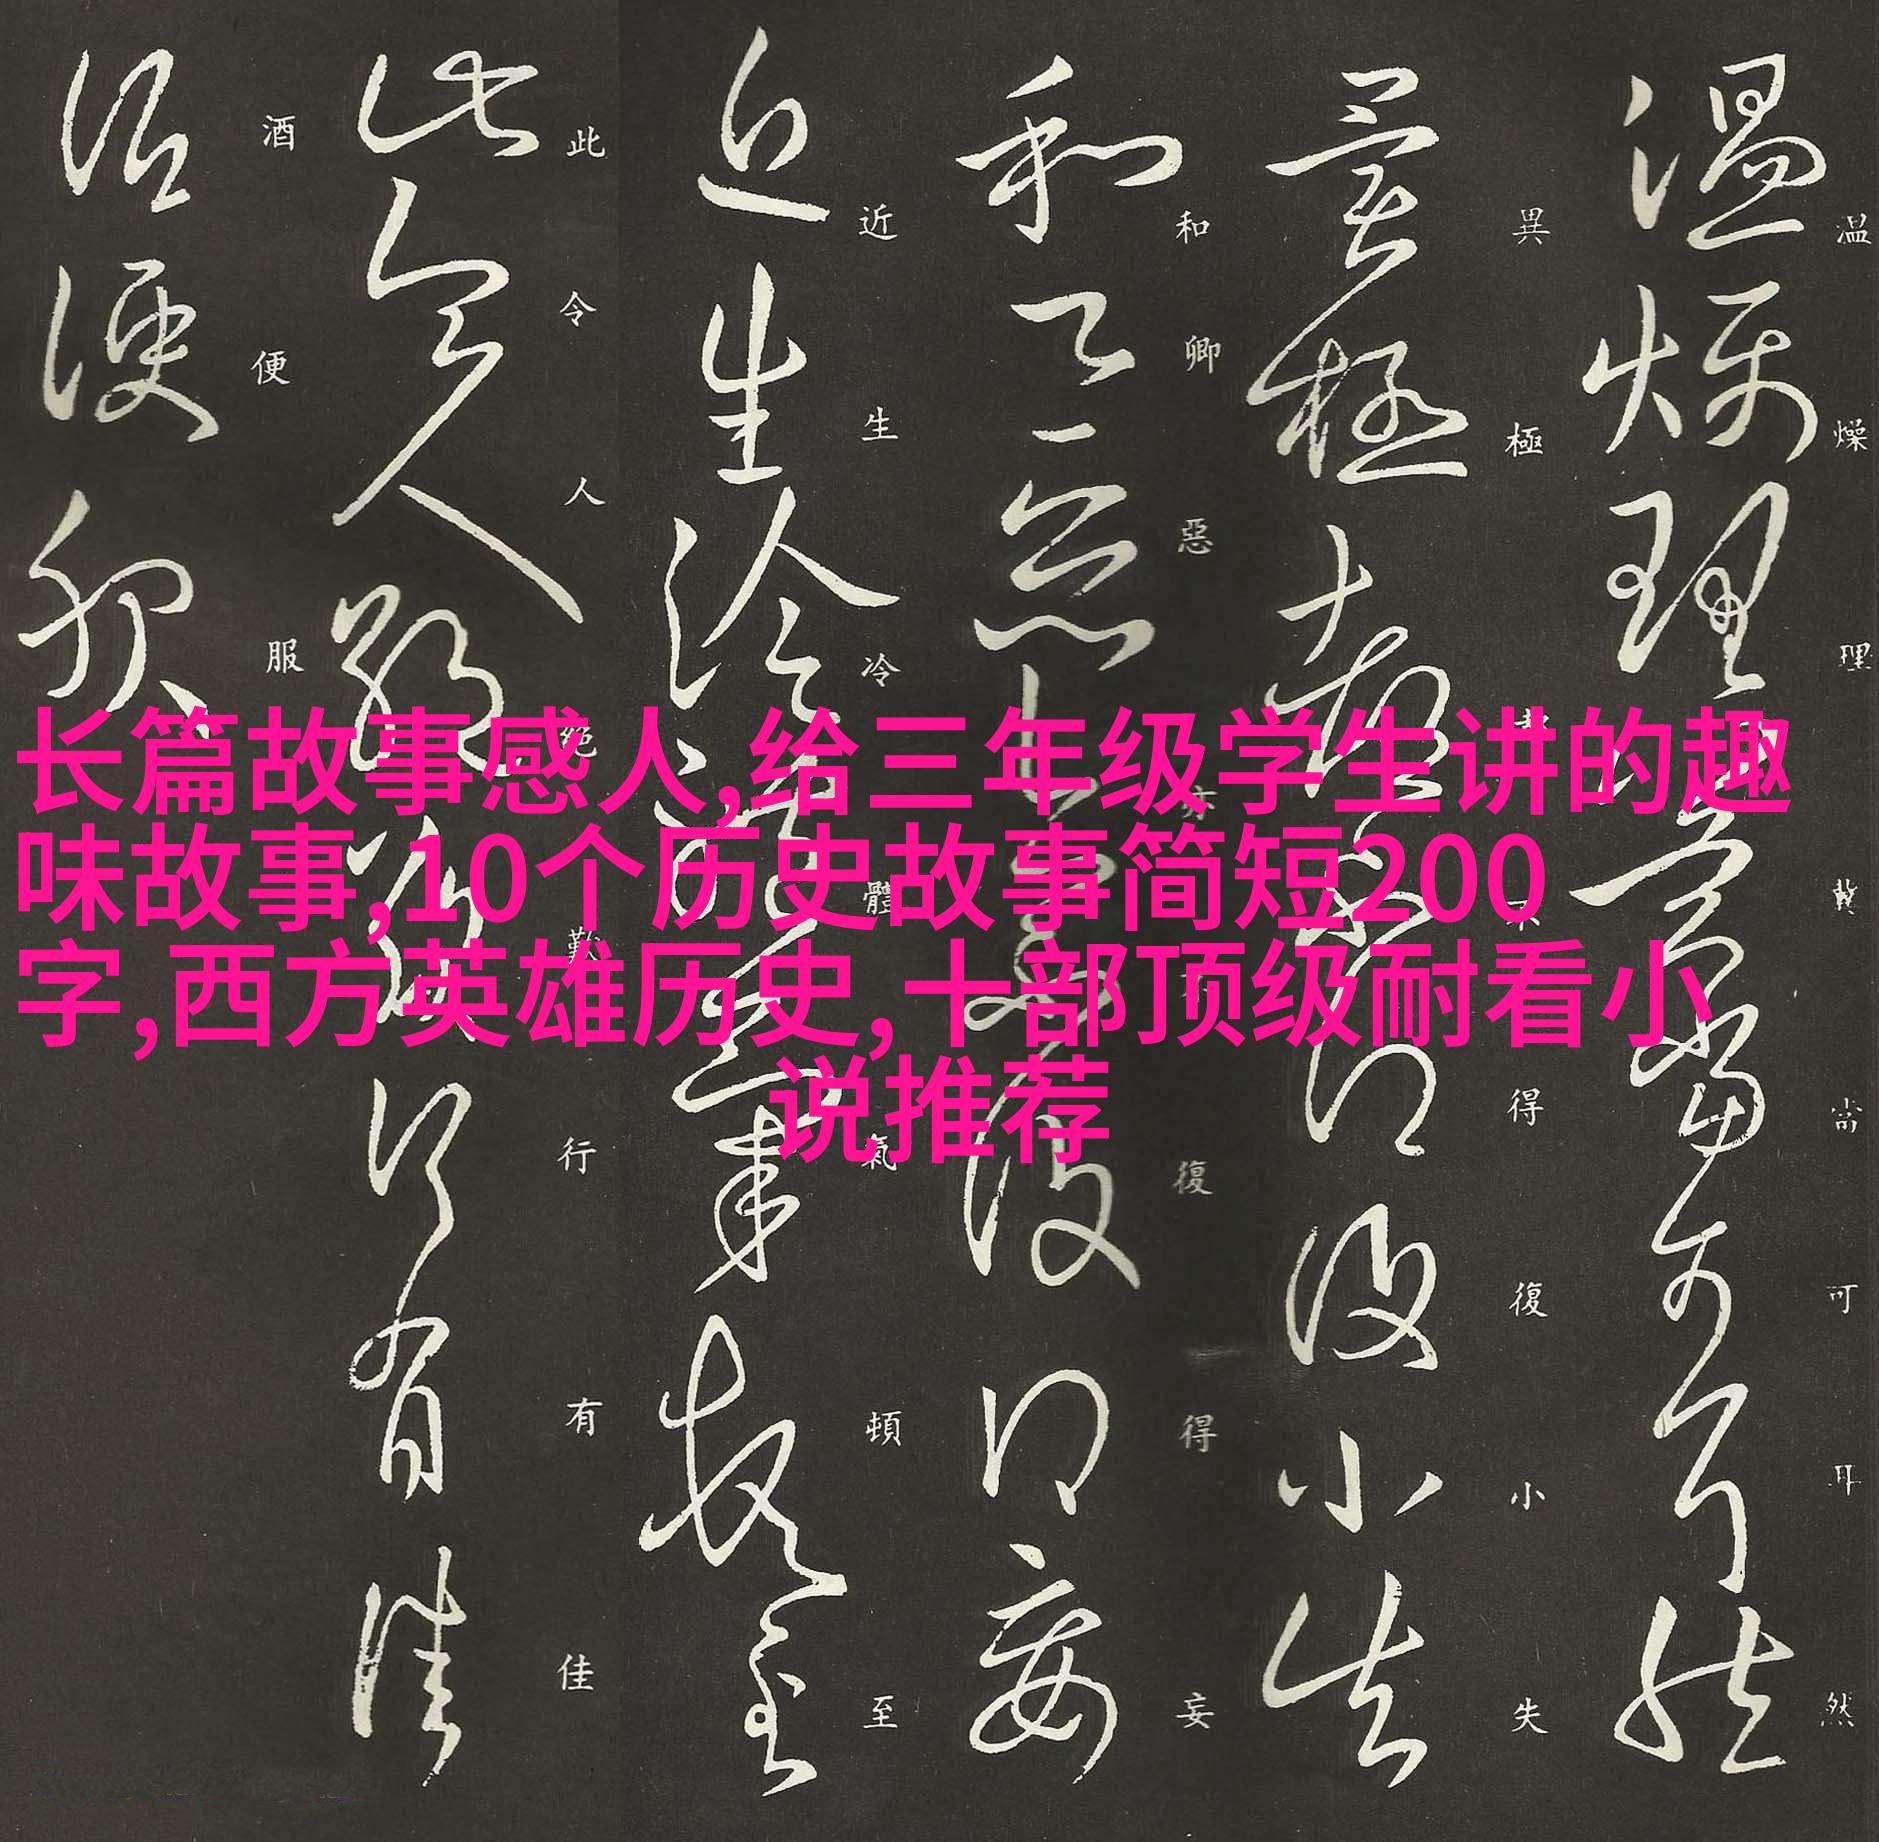 长篇故事感人,给三年级学生讲的趣
味故事,10个历史故事简短200
字,西方英雄历史,十部顶级耐看小
说,推荐
温燥理冀當可耳然
異極都不得復小失
和卿惡亦不復得妄
近生冷體氣頓至
此令人絕歎行有佳
酒便服